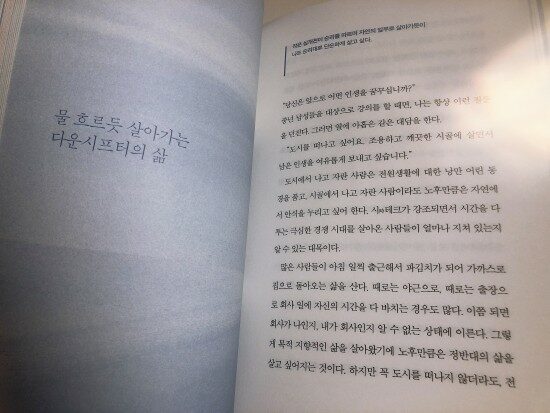 물 흐르듯 살아가는
다운시프터의 삶
작은 실개천이 순리를 따르며 자연의 일부로 살아가듯이
나도 순리대로 단순하게 살고 싶다.
"당신은 앞으로 어떤 인생을 꿈꾸십니까?"
중년 남성들을 대상으로 강의를 할 때면, 나는 항상 이런 질문
을 던진다. 그러면 열에 아홉은 같은 대답을 한다.
"도시를 떠나고 싶어요. 조용하고 깨끗한 시골에 살면서
남은 인생을 여유롭게 보내고 싶습니다."
도시에서 나고 자란 사람은 전원생활에 대한 낭만 어린 동
경을 품고, 시골에서 나고 자란 사람이라도 노후만큼은 자연에
서 안식을 누리고 싶어 한다. 시時테크가 강조되면서 시간을 다
투는 극심한 경쟁 시대를 살아온 사람들이 얼마나 지쳐 있는지
알 수 있는 대목이다.
많은 사람들이 아침 일찍 출근해서 파김치가 되어 가까스로
집으로 돌아오는 삶을 산다. 때로는 야근으로, 때로는 출장으
로 회사 일에 자신의 시간을 다 바치는 경우도 많다. 이쯤 되면
회사가 나인지, 내가 회사인지 알 수 없는 상태에 이른다. 그렇
게 목적 지향적인 삶을 살아왔기에 노후만큼은 정반대의 삶을
살고 싶어지는 것이다. 하지만 꼭 도시를 떠나지 않더라도, 전